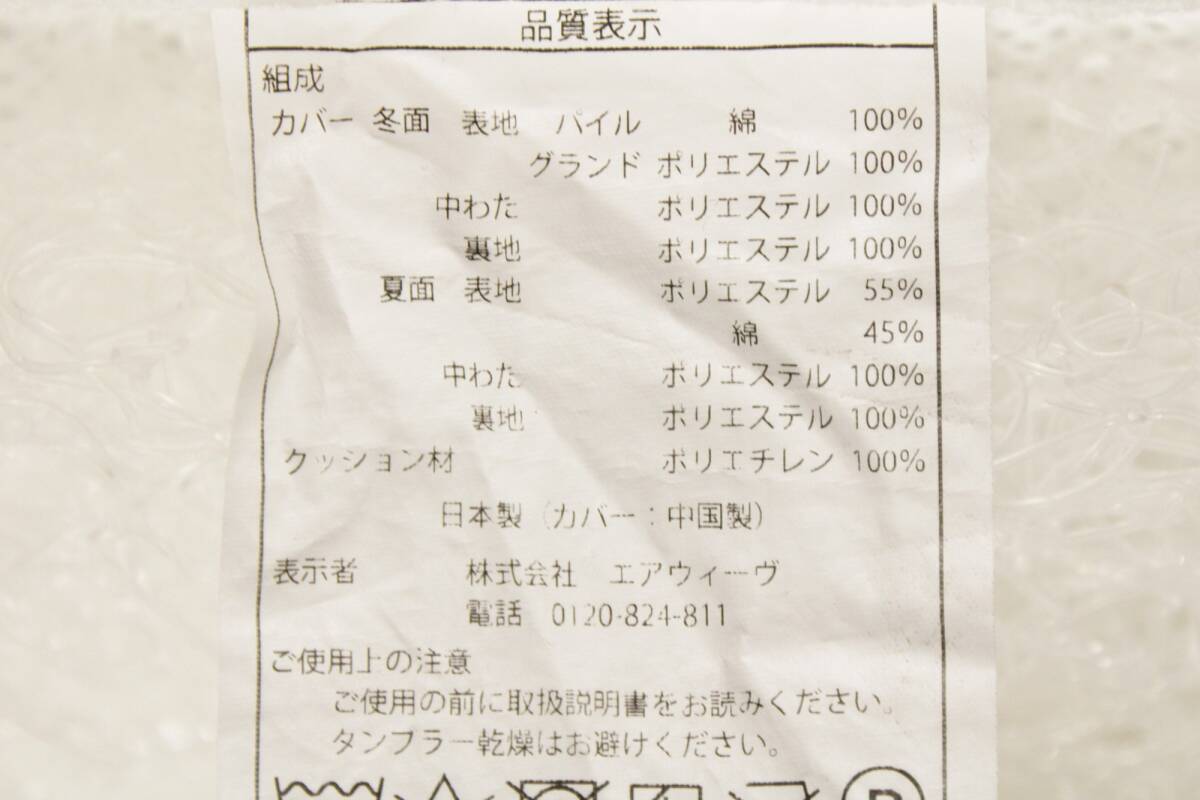 品質表示
組成
カバー 冬面 表地 パイル 綿 100%
グランド ポリエステル 100%
中わた ポリエステル 100%
裏地 ポリエステル 100%
夏面 表地 ポリエステル 55%
綿 45%
中わた ポリエステル 100%
裏地 ポリエステル 100%
クッション材 ポリエチレン 100%
日本製（カバー：中国製）
表示者 株式会社 エアウィーヴ
電話 0120-824-811
ご使用上の注意
ご使用の前に取扱説明書をお読みください。
タンブラー乾燥はお避けください。